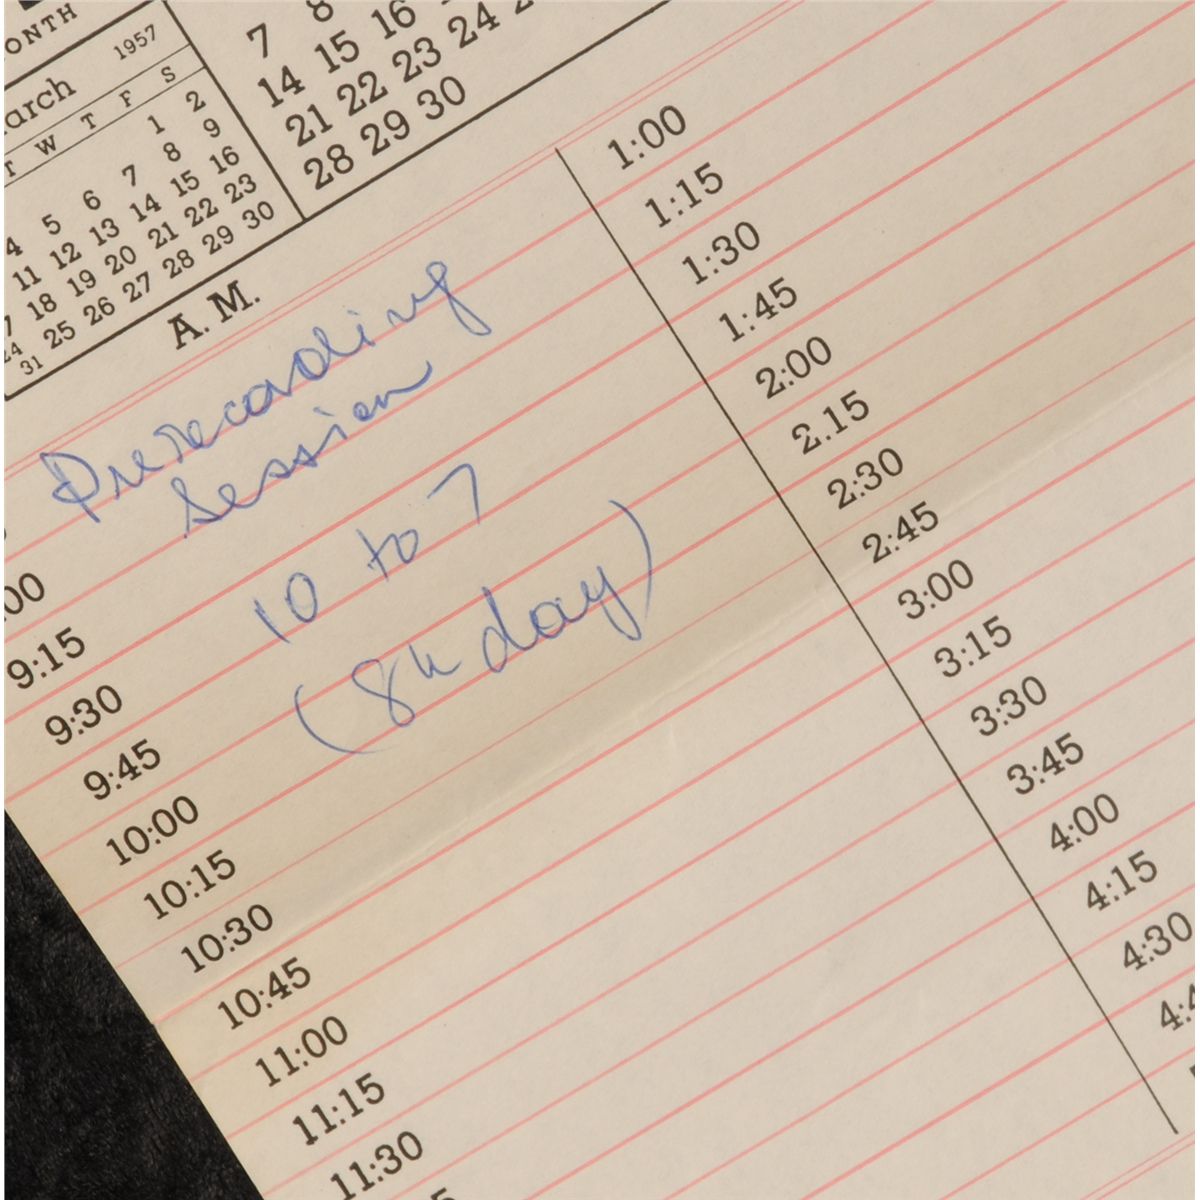 ONTH
arch 1957
T W T F S
1 2
4 5 6 7 8 9
11 12 13 14 15 16
18 19 20 21 22 23
24 25 26 27 28 29 30
31
7 8
14 15 16
21 22 23 24
28 29 30
A. M.
Prerecording
session
10 to 7
(8h day)
00
9:15
9:30
9:45
10:00
10:15
10:30
10:45
11:00
11:15
11:30
1:00
1:15
1:30
1:45
2:00
2.15
2:30
2:45
3:00
3:15
3:30
3:45
4:00
4:15
4:30
4:4